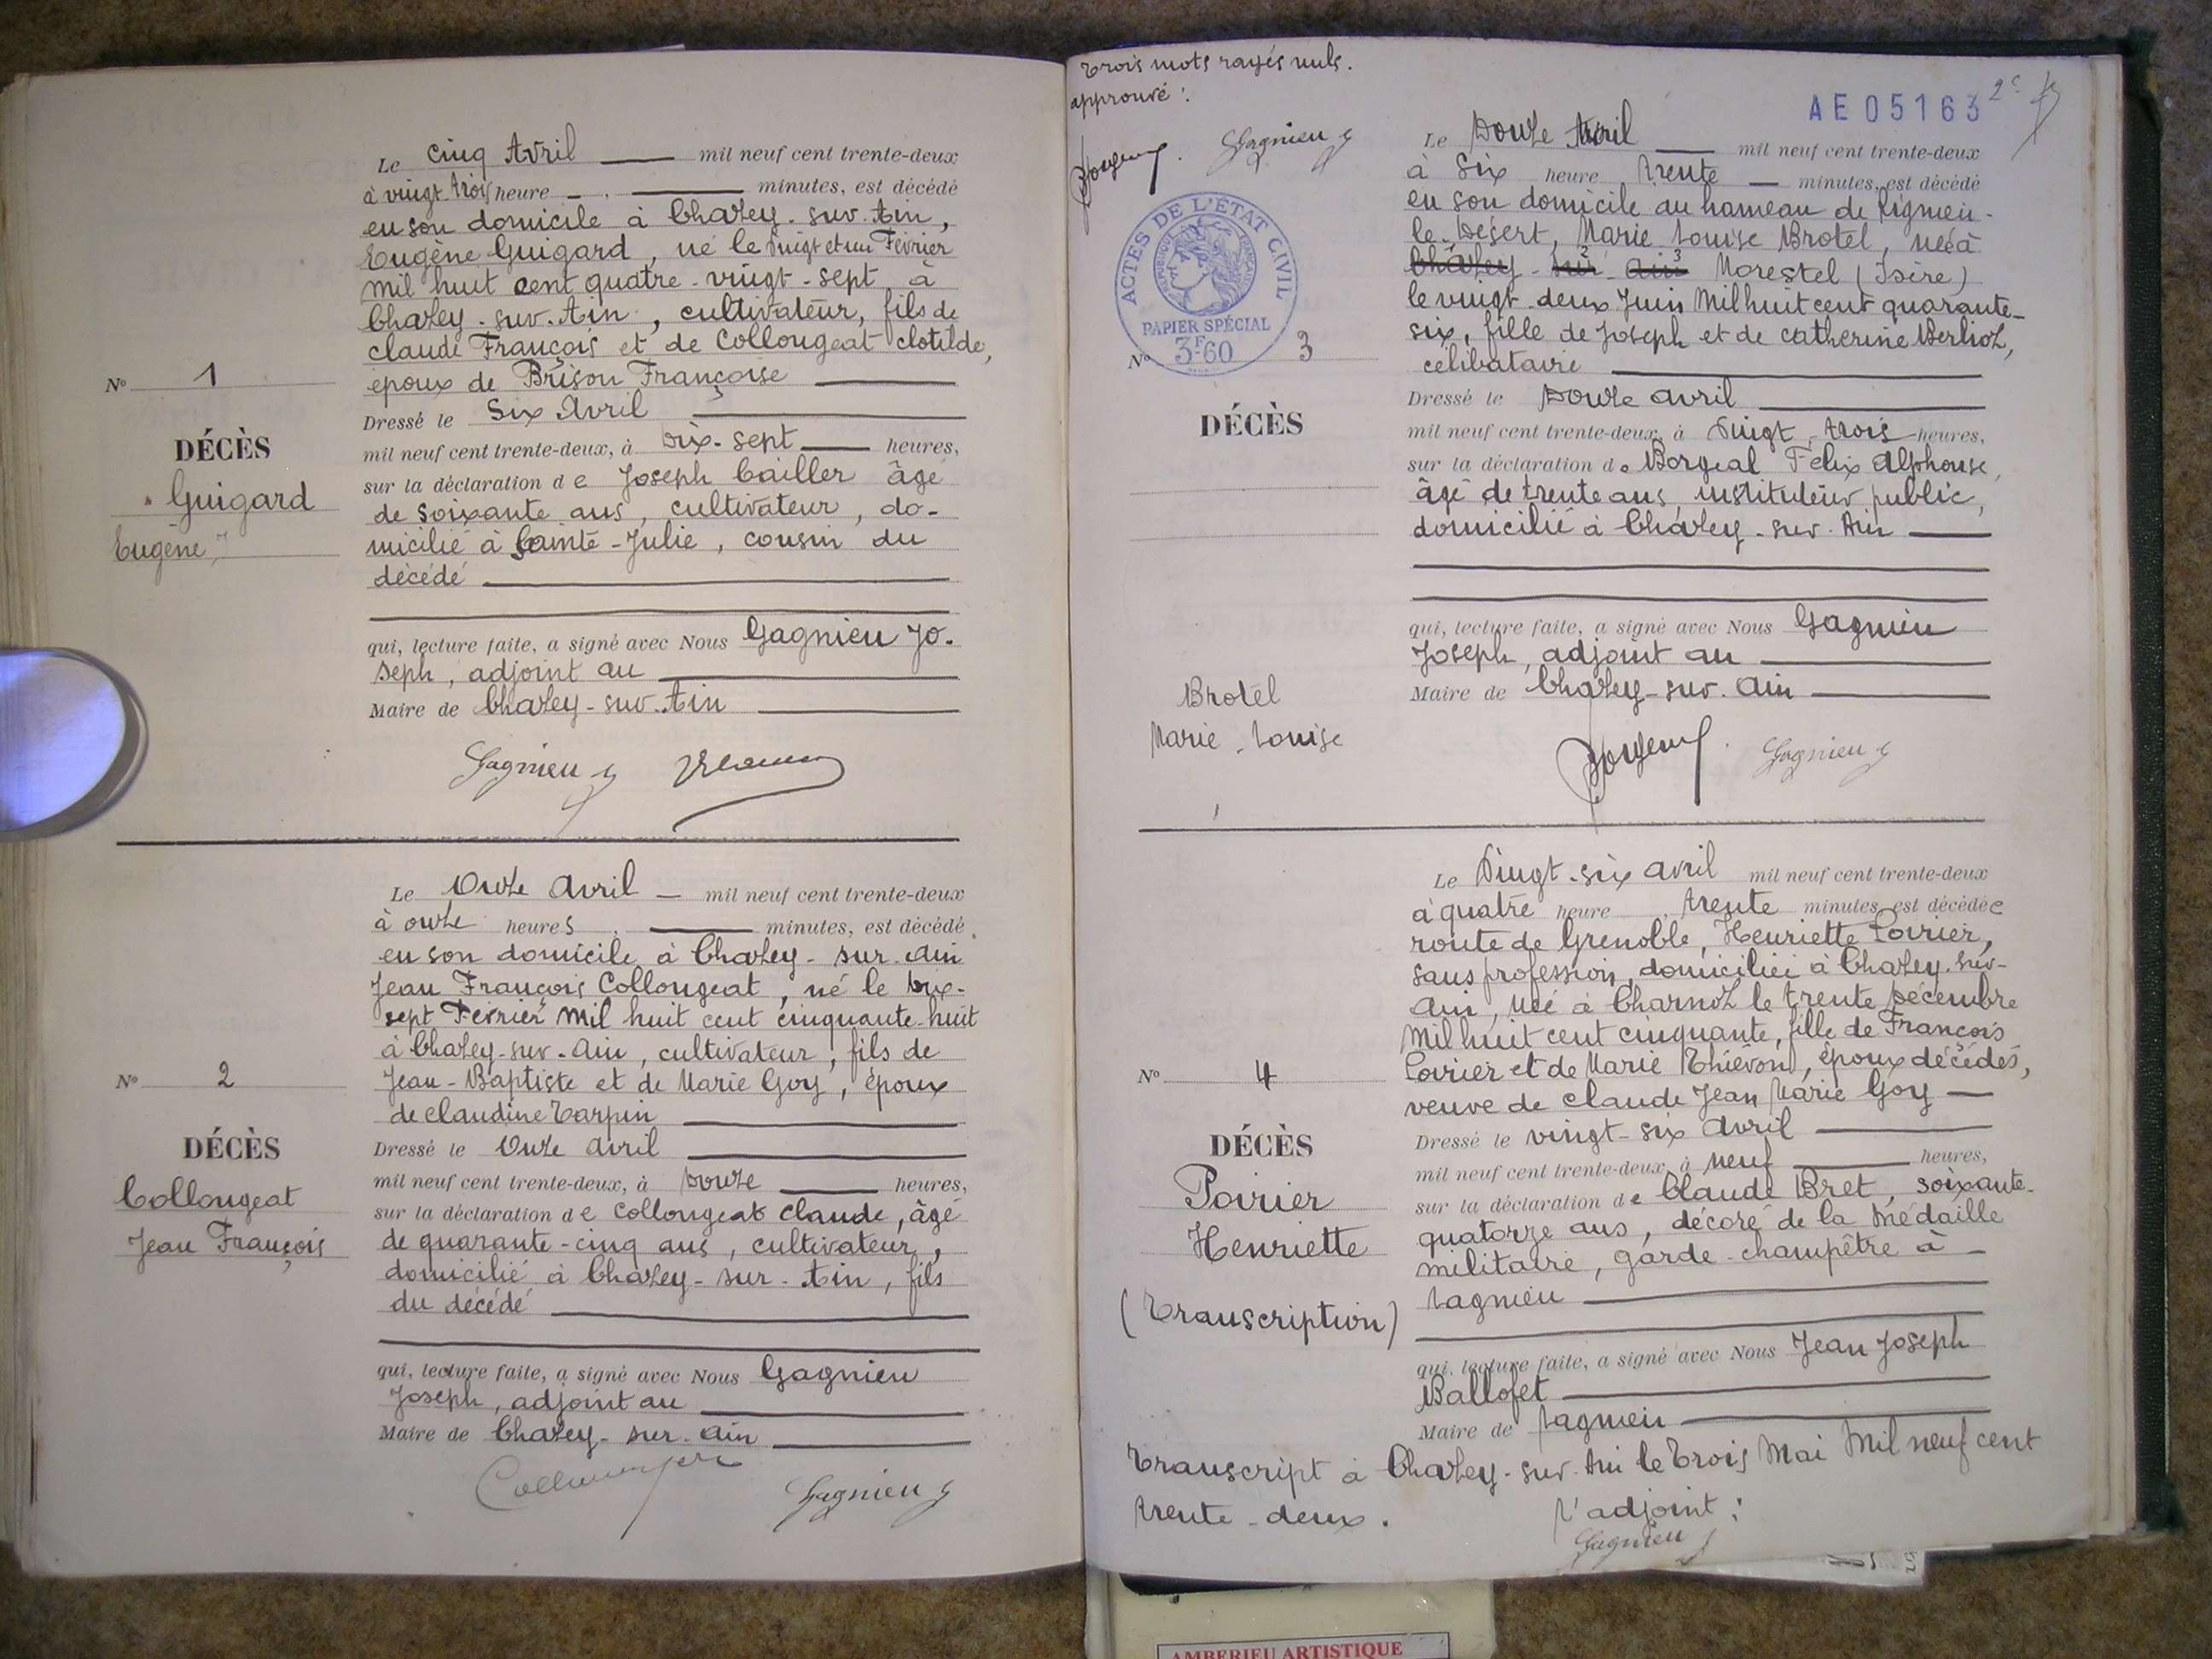 Le cinq Avril mil neuf cent trente-deux
à vingt trois heure minutes, est décédé
en son domicile à Chazey-sur-Ain,
Eugène Guigard, né le vingt et un Février
mil huit cent quatre-vingt-sept à
Chazey-sur-Ain, cultivateur, fils de
Claude François et de Collongeat Clotilde,
époux de Brison Françoise
Dressé le Six Avril
mil neuf cent trente-deux, à Dix-sept heures,
sur la déclaration de Joseph Cailler âgé
de soixante ans, cultivateur, do-
micilié à Sainte-Julie, cousin du
décédé
qui, lecture faite, a signé avec Nous Gagnieu Jo-
seph, adjoint au
Maire de Chazey-sur-Ain
Gagnieu J
No 1
DÉCÈS
Guigard
Eugène
Le Onze Avril mil neuf cent trente-deux
à onze heures minutes, est décédé
en son domicile à Chazey-sur-Ain
Jean François Collongeat, né le Dix-
sept Février mil huit cent cinquante-huit
à Chazey-sur-Ain, cultivateur, fils de
Jean-Baptiste et de Marie Goy, époux
de Claudine Tarpin
Dressé le Onze Avril
mil neuf cent trente-deux, à Douze heures,
sur la déclaration de Collongeat Claude, âgé
de quarante-cinq ans, cultivateur,
domicilié à Chazey-sur-Ain, fils
du décédé
qui, lecture faite, a signé avec Nous Gagnieu
Joseph, adjoint au
Maire de Chazey-sur-Ain
Gagnieu J
No 2
DÉCÈS
Collongeat
Jean François
Trois mots rayés nuls.
approuvé :
Gagnieu J
ACTES DE L'ÉTAT CIVIL
RÉPUBLIQUE FRANÇAISE
PAPIER SPÉCIAL
3F60
AE05163
2e
Le Douze Avril mil neuf cent trente-deux
à Six heure trente minutes, est décédé
en son domicile au hameau de Rignieu-
le-Désert, Marie Louise Brotel, née à
Chazey-sur-Ain Morestel (Isère)
le vingt-deux Juin Mil huit cent quarante-
six, fille de Joseph et de Catherine Berlioz,
célibataire
Dressé le Douze avril
mil neuf cent trente-deux, à Vingt-trois heures,
sur la déclaration de Borgeal Félix Alphonse,
âgé de trente ans, instituteur public,
domicilié à Chazey-sur-Ain
qui, lecture faite, a signé avec Nous Gagnieu
Joseph, adjoint au
Maire de Chazey-sur-Ain
Gagnieu J
No 3
DÉCÈS
Brotel
Marie-Louise
Le Vingt-six avril mil neuf cent trente-deux
à quatre heure trente minutes, est décédée
route de Grenoble, Henriette Poirier,
sans profession, domiciliée à Chazey-sur-
Ain, née à Charnoz le trente Décembre
Mil huit cent cinquante, fille de François
Poirier et de Marie Thiévon, époux décédés,
veuve de Claude Jean Marie Goy
Dressé le vingt-six Avril
mil neuf cent trente-deux, à neuf heures,
sur la déclaration de Claude Bret, soixante-
quatorze ans, décoré de la Médaille
militaire, garde-champêtre à
Lagnieu
qui, lecture faite, a signé avec Nous Jean Joseph
Ballofet
Maire de Lagnieu
No 4
DÉCÈS
Poirier
Henriette
(Transcription)
Transcript à Chazey-sur-Ain le Trois Mai Mil neuf cent
trente-deux.
L'adjoint :
Gagnieu J
AMBERIEU ARTISTIQUE